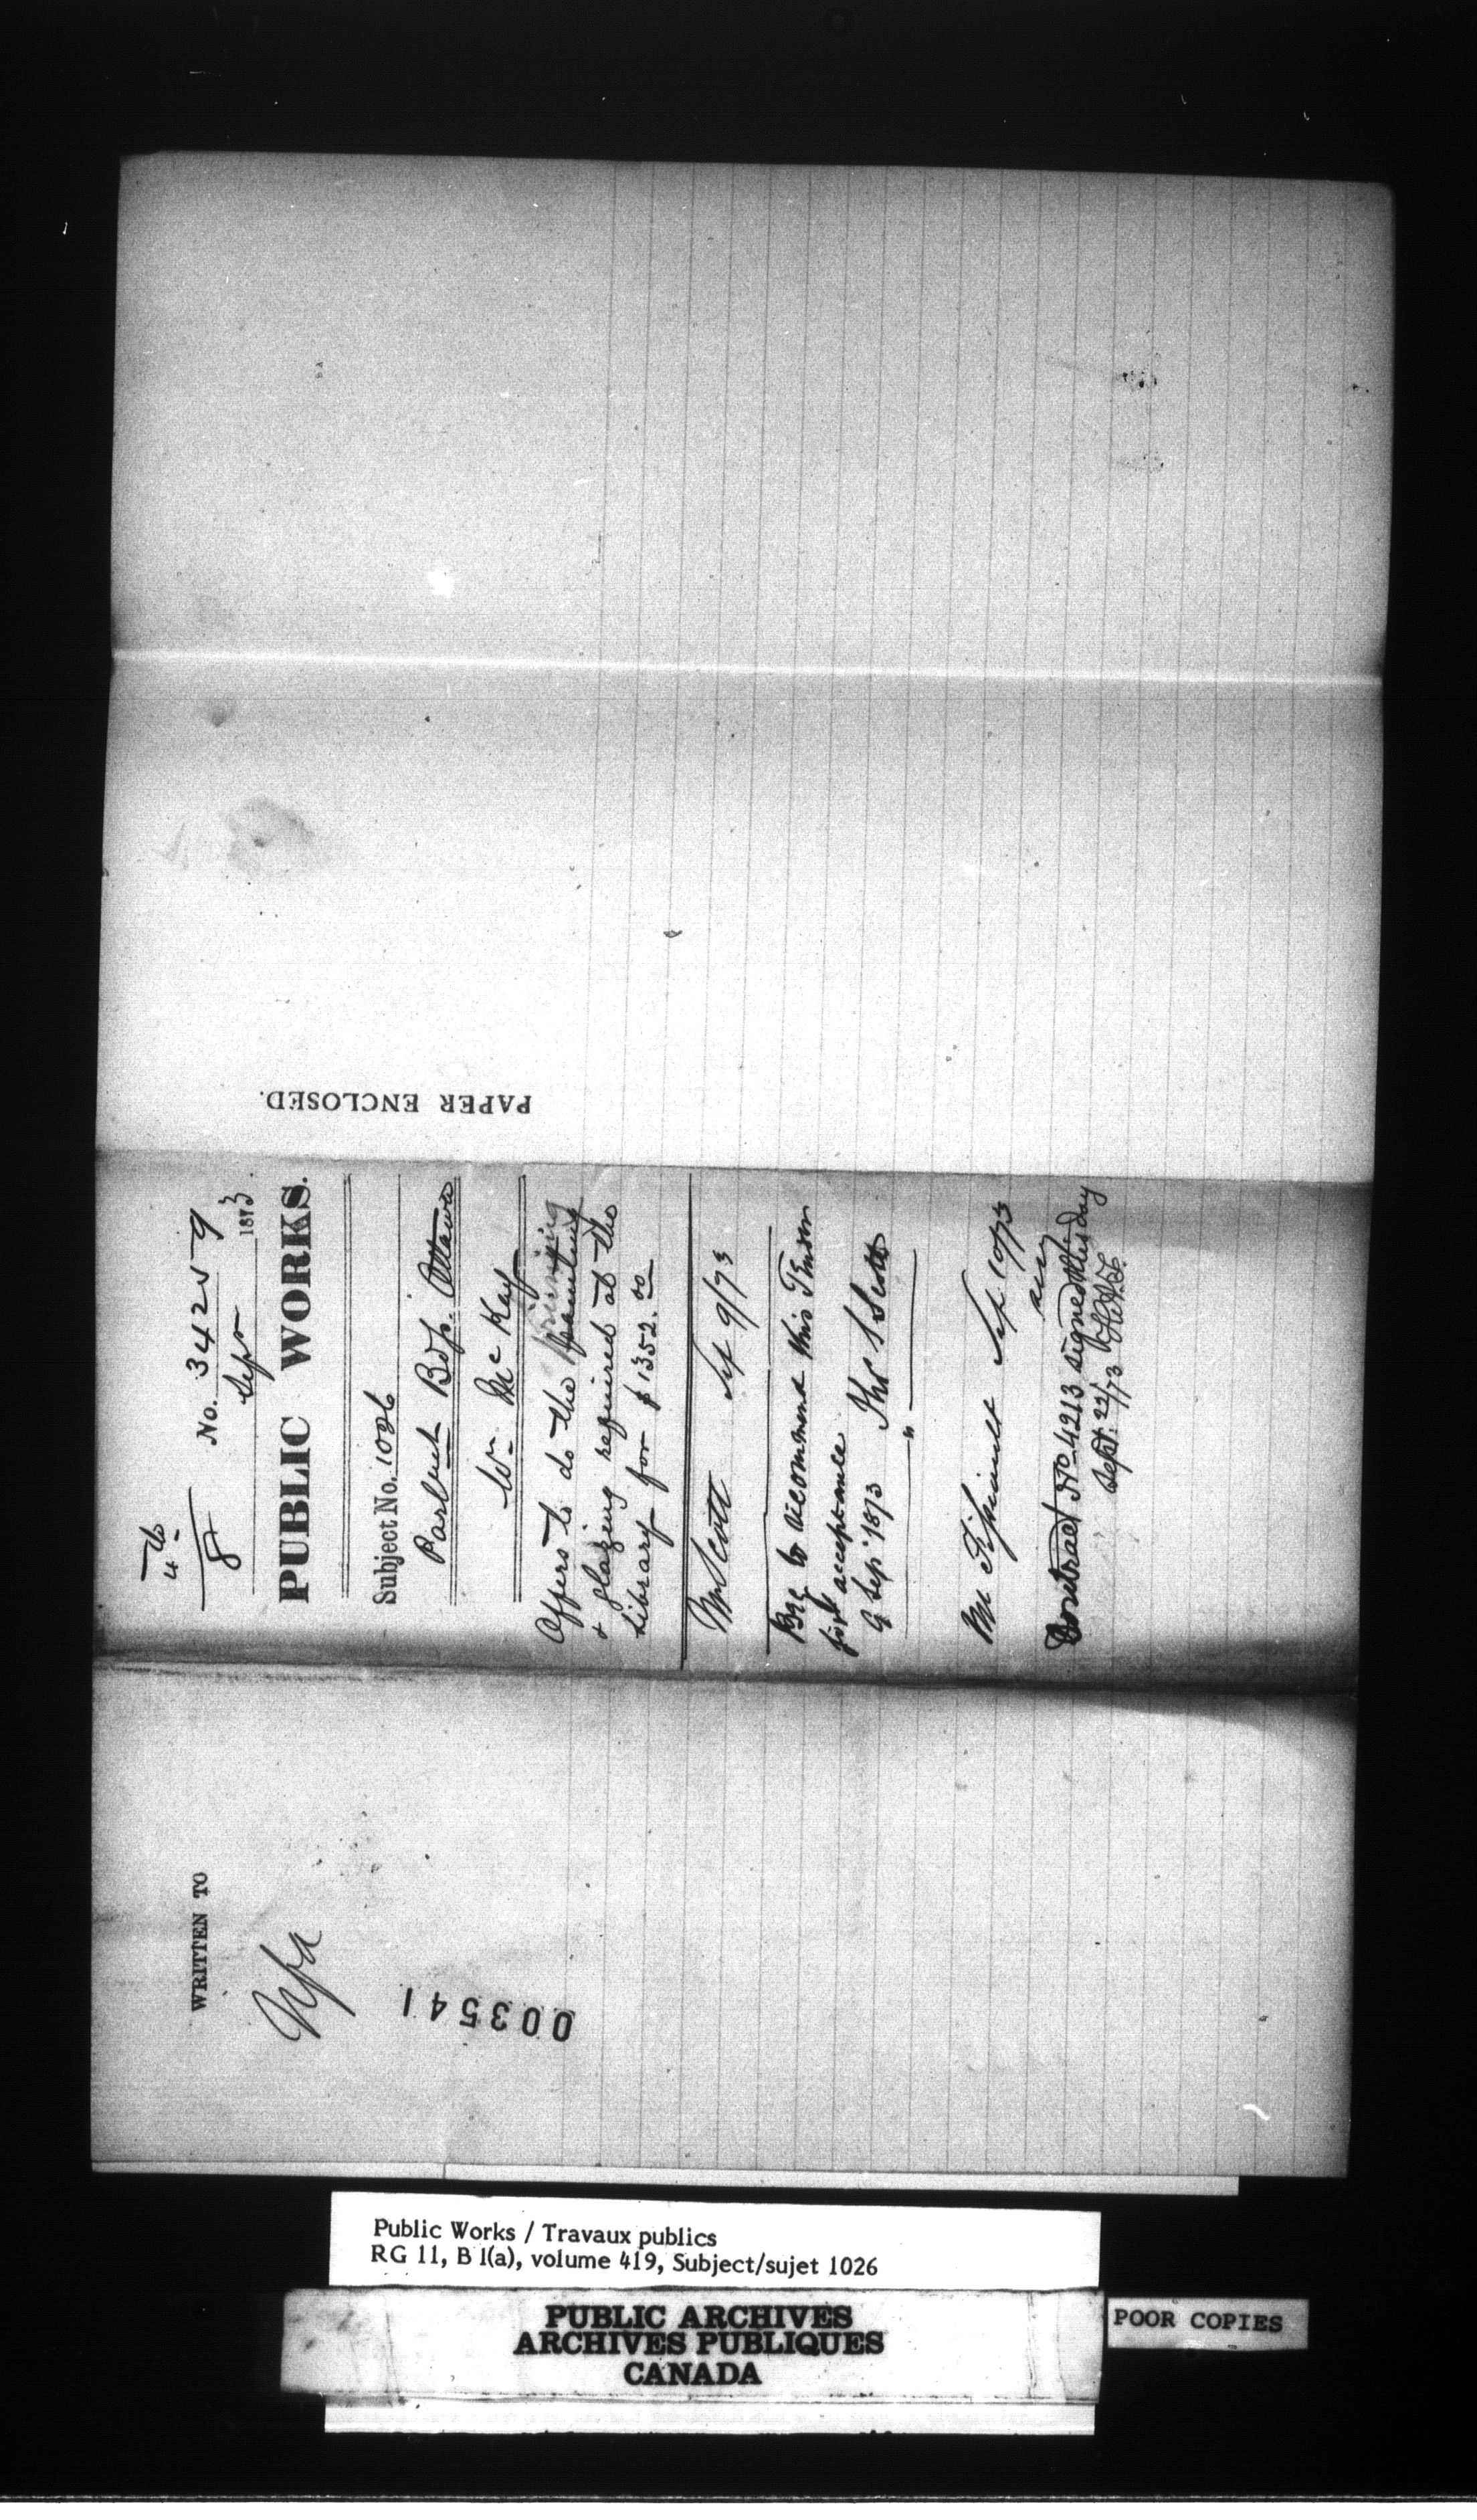 4th
8
No. 34259
Sepr 1873.
PUBLIC WORKS.
Subject No. 1026
Parlmt Bdgs. Ottawa
Wm McKay
Offers to do the painting
& glazing required at the
Library for $1352.00
Mr Scott Sep 9/73
Beg to recommend this Tender
for acceptance
9 Sep 1873 Thos S Scott
Sep 10/73
Contract No 4213 signed this day
Sept. 22/73
PAPER ENCLOSED.
WRITTEN TO
003541
Public Works / Travaux publics
RG 11, B 1(a), volume 419, Subject/sujet 1026
PUBLIC ARCHIVES
ARCHIVES PUBLIQUES
CANADA
POOR COPIES